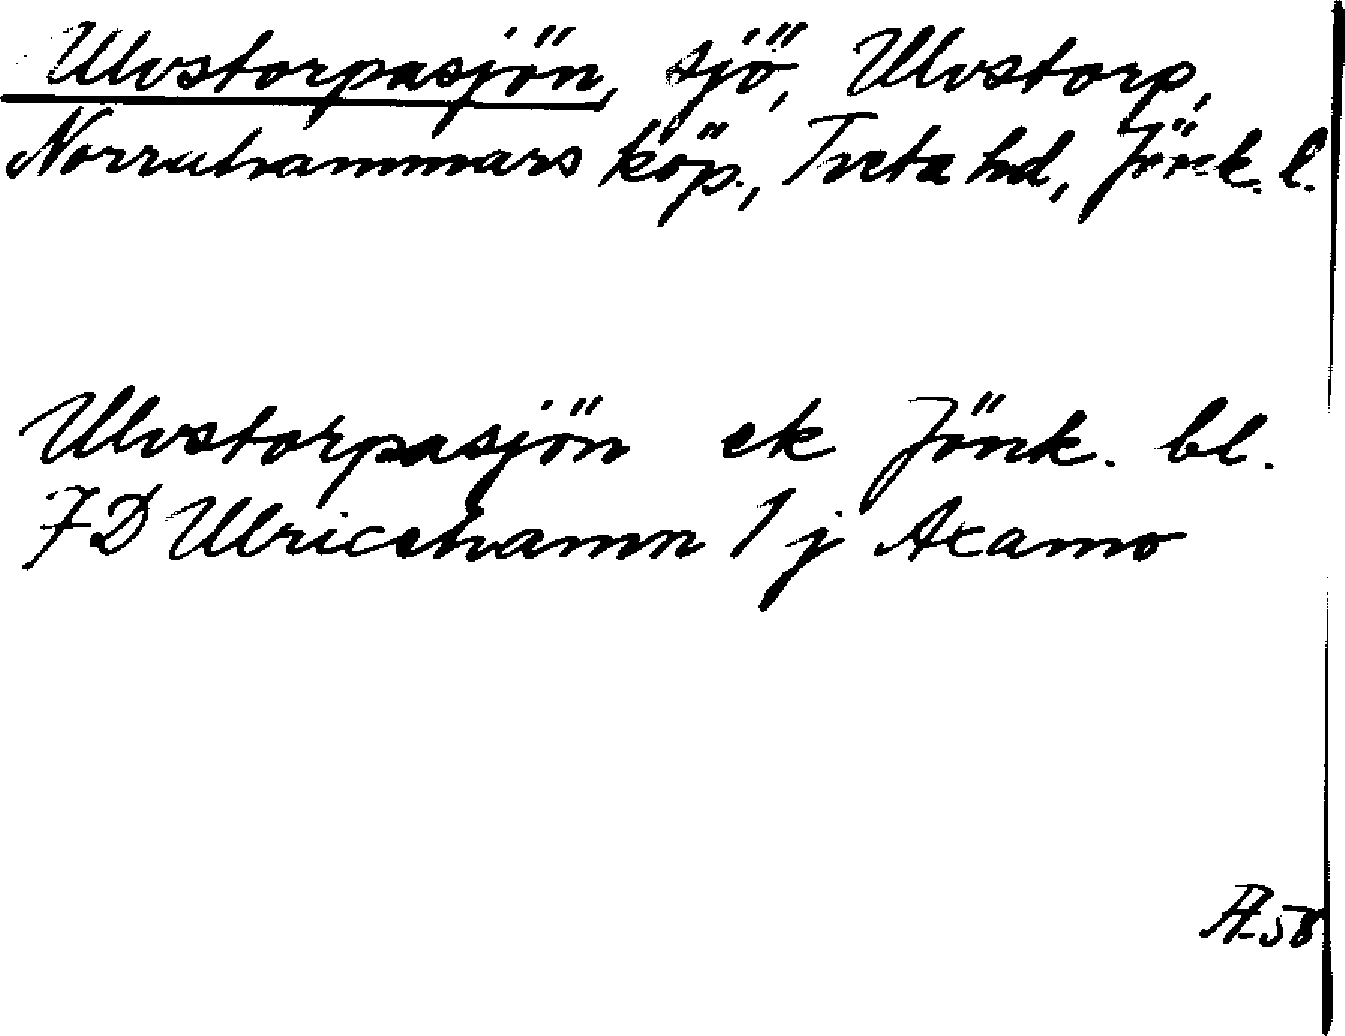 Ulvstorpasjön, sjö, Ulvstorp,
Norrahammars köp., Tveta hd, Jönk. l.
Ulvstorpasjön ek Jönk. bl.
7D Ulricehamn 1 j Axamo
Æ 58